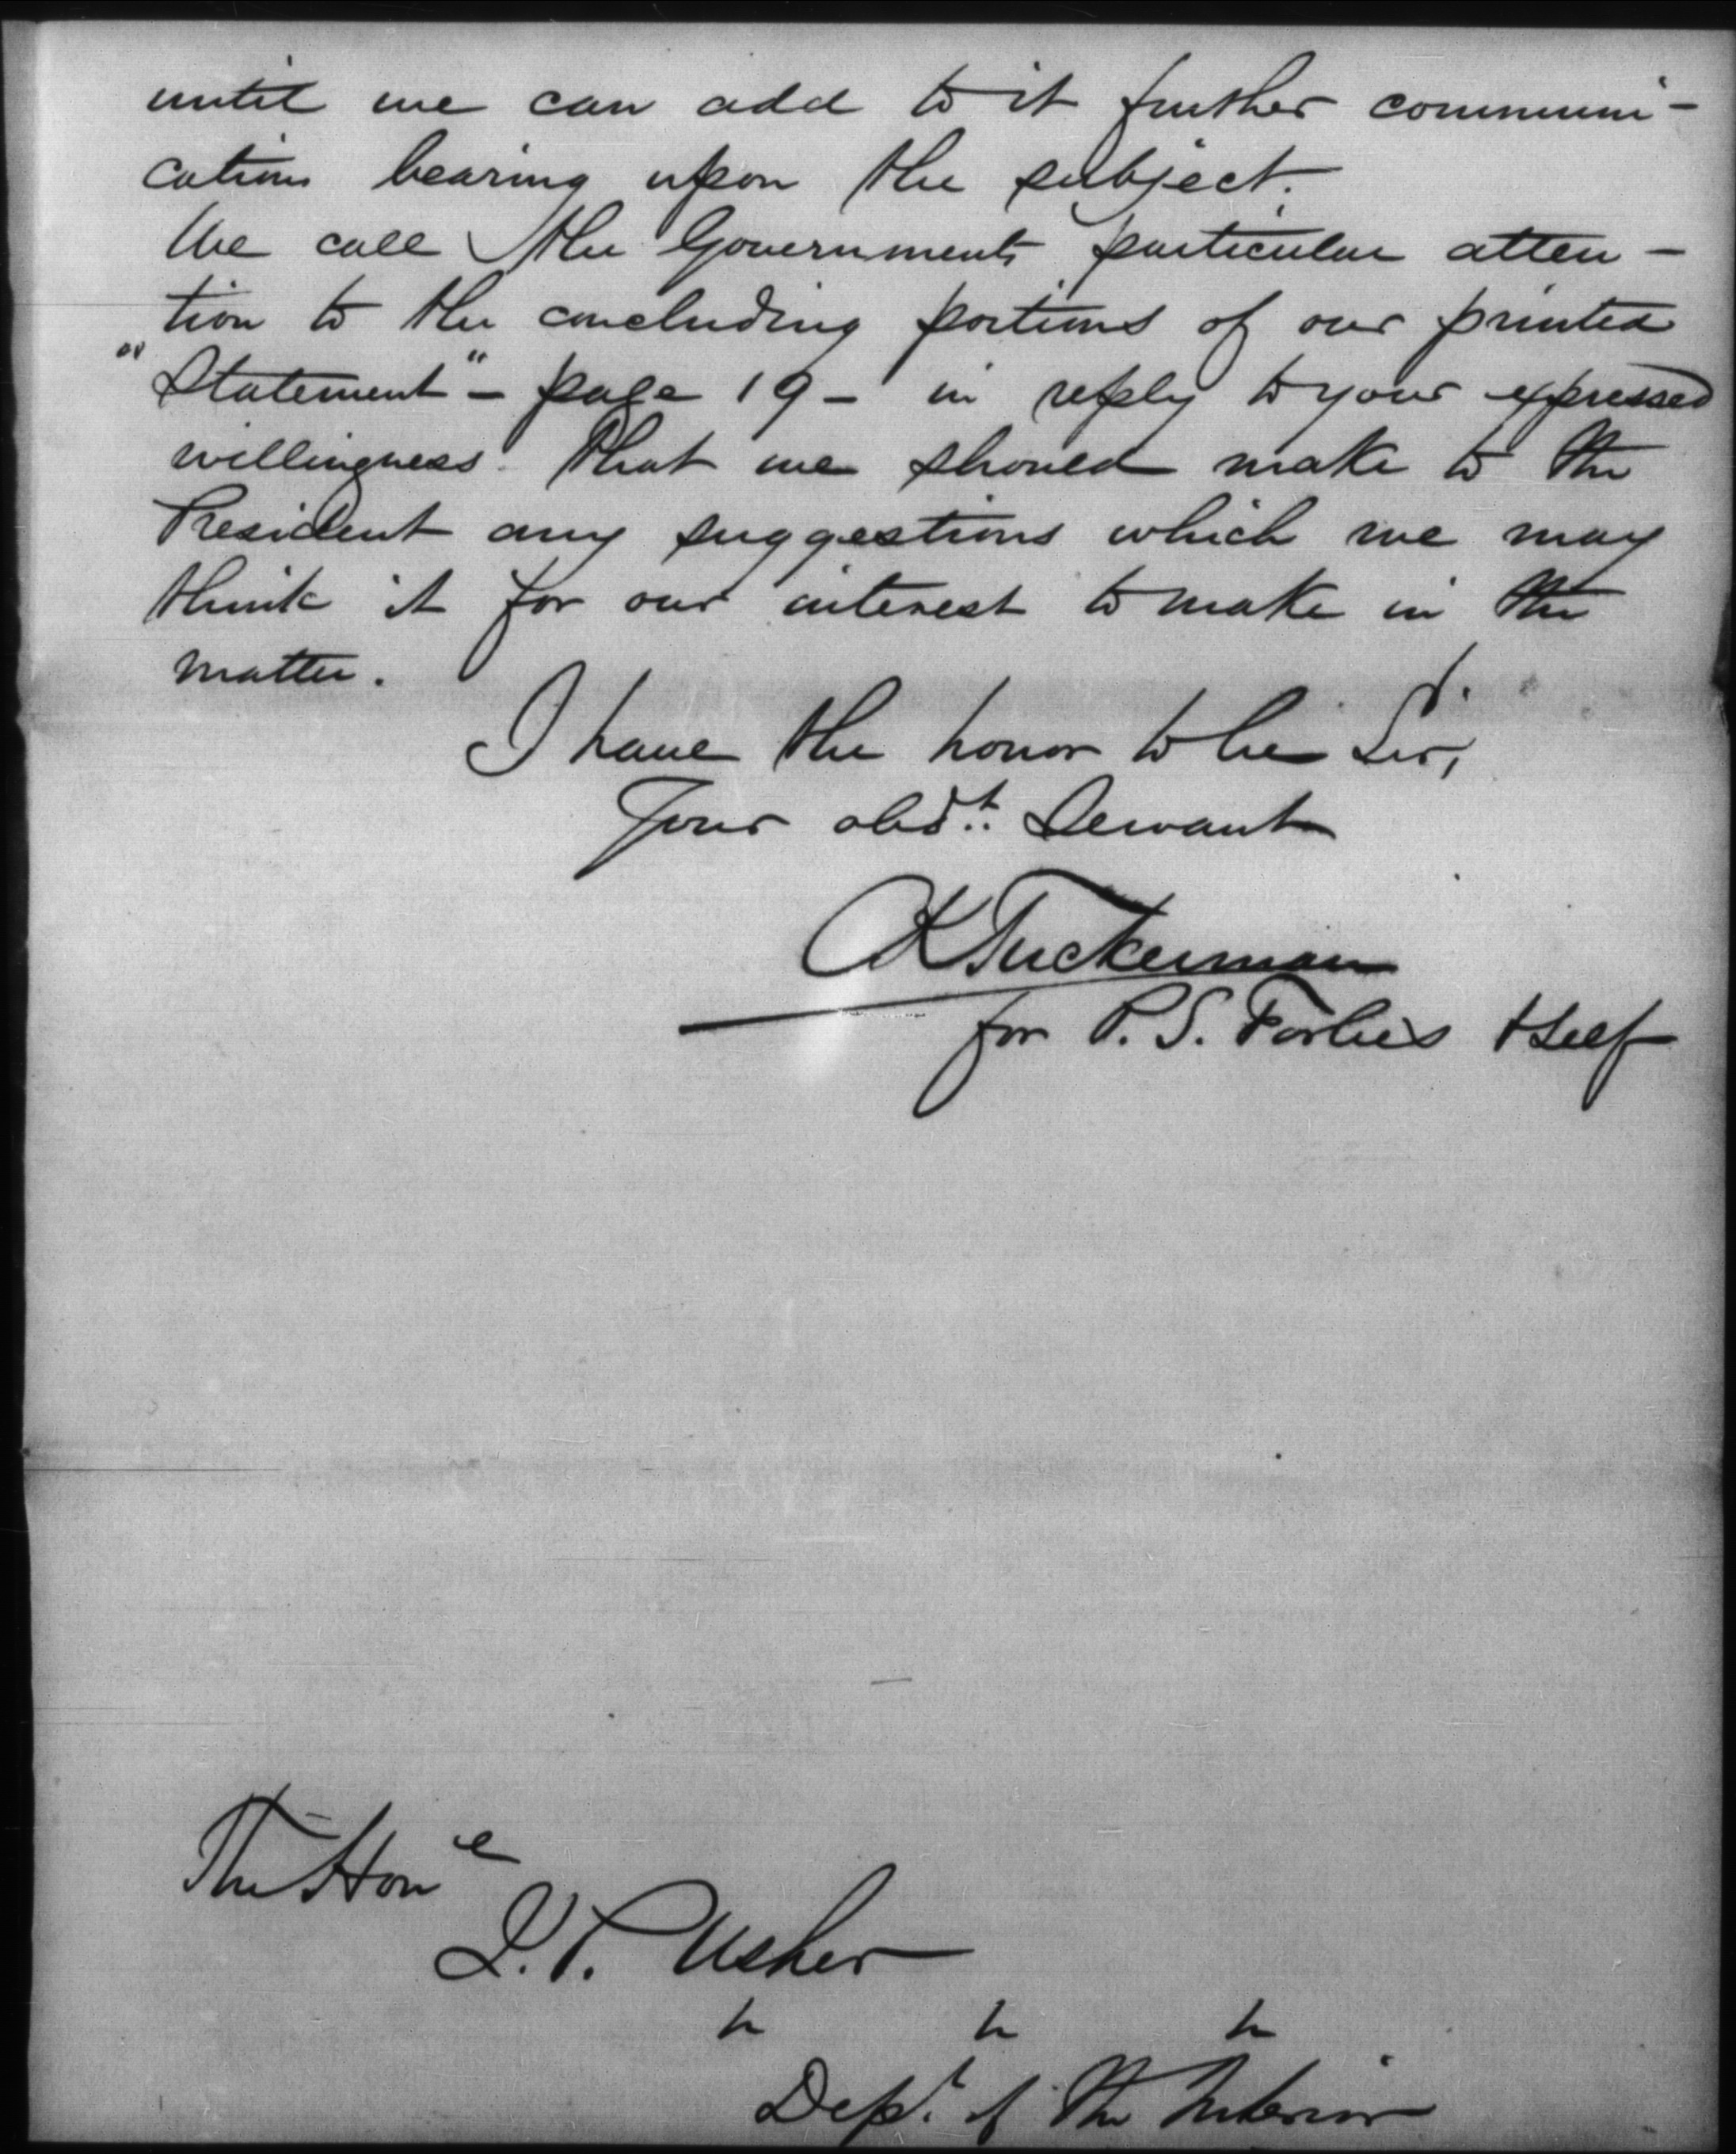 until we can add to it further communi-
cations bearing upon the subject.
We call the Governments particular atten-
tion to the concluding portions of our printed
"Statement" - page 19 - in reply to your expressed
willingness that we should make to the
President any suggestions which we may
think it for our interest to make in the
matter.
I have the honor to be Sir,
Your obdt. Servant
CK Tuckerman
for P. S. Forbes & self
The Hone
J. P. Usher
" " "
Dept. of the Interior